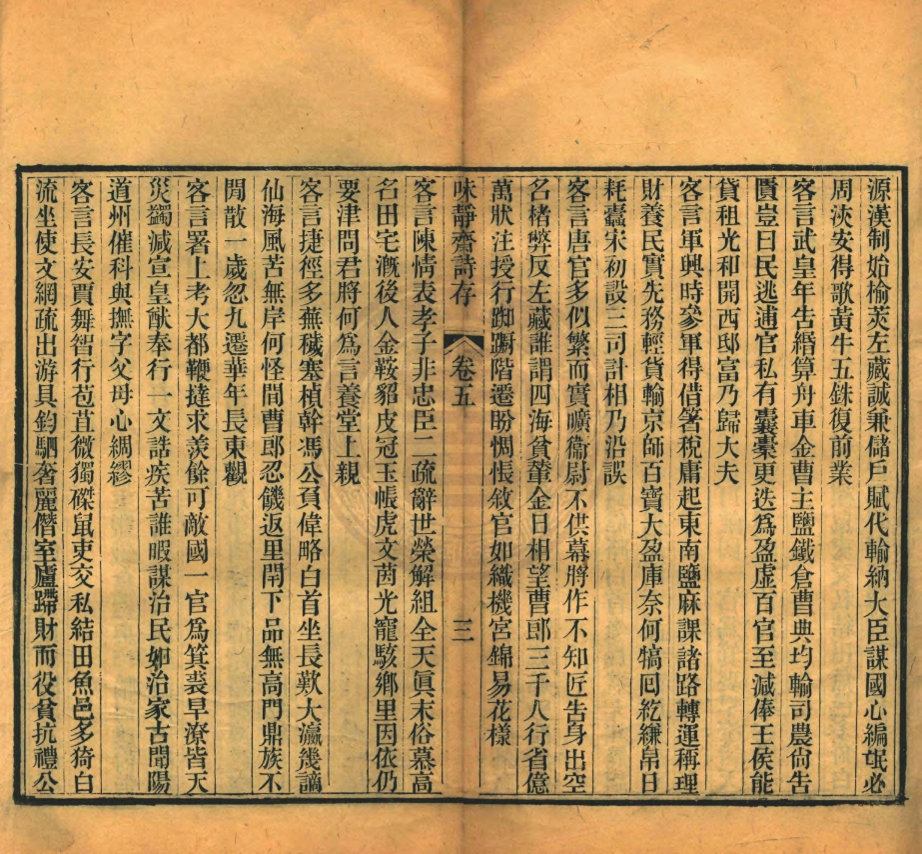 源漢制始榆莢左藏誠兼儲戸賦代輸納大臣謀國心編氓必
周浹安得歌黃牛五銖復前業
客言武皇年告緡算舟車金曹主鹽鐵倉曹典均輸司農尙告
匱豈曰民逃逋官私有囊橐更迭爲盈虛百官至減俸王侯能
貸租光和開西邸富乃歸大夫
客言軍興時參軍得借箸稅庸起東南鹽麻課諸路轉運稱理
財養民實先務輕貨輸京師百寶大盈庫奈何犒回紇縑帛日
耗蠹宋初設三司計相乃沿誤
客言唐官多似繁而實曠衞尉不供幕將作不知匠告身出空
名楮弊反左藏誰謂四海貧輦金日相望曹郎三千人行省億
萬狀注授行踟躕階遷盼惆悵敘官如織機宮錦易花樣
味靜齋詩存 卷五 三
客言陳情表孝子非忠臣二疏辭世榮解組全天眞末俗慕高
名田宅溉後人金鞍貂皮冠玉帳虎文茵光寵駭鄉里因依仍
要津問君將何爲言養堂上親
客言捷徑多蕪穢塞楨幹馮公負偉略白首坐長歎大瀛幾謫
仙海風苦無岸何怪間曹郎忍饑返里閈下品無高門鼎族不
閒散一歲忽九遷華年長東觀
客言署上考大都鞭撻求羨餘可敵國一官爲箕裘旱潦皆天
災蠲減宣皇猷奉行一文誥疾苦誰暇謀治民如治家古聞陽
道州催科與撫字父母心綢繆
客言長安賈舞智行苞苴微獨磔鼠吏交私結田魚邑多猗白
流坐使文網疏出游具鈞駟奢麗僭室廬蹛財而役貧抗禮公